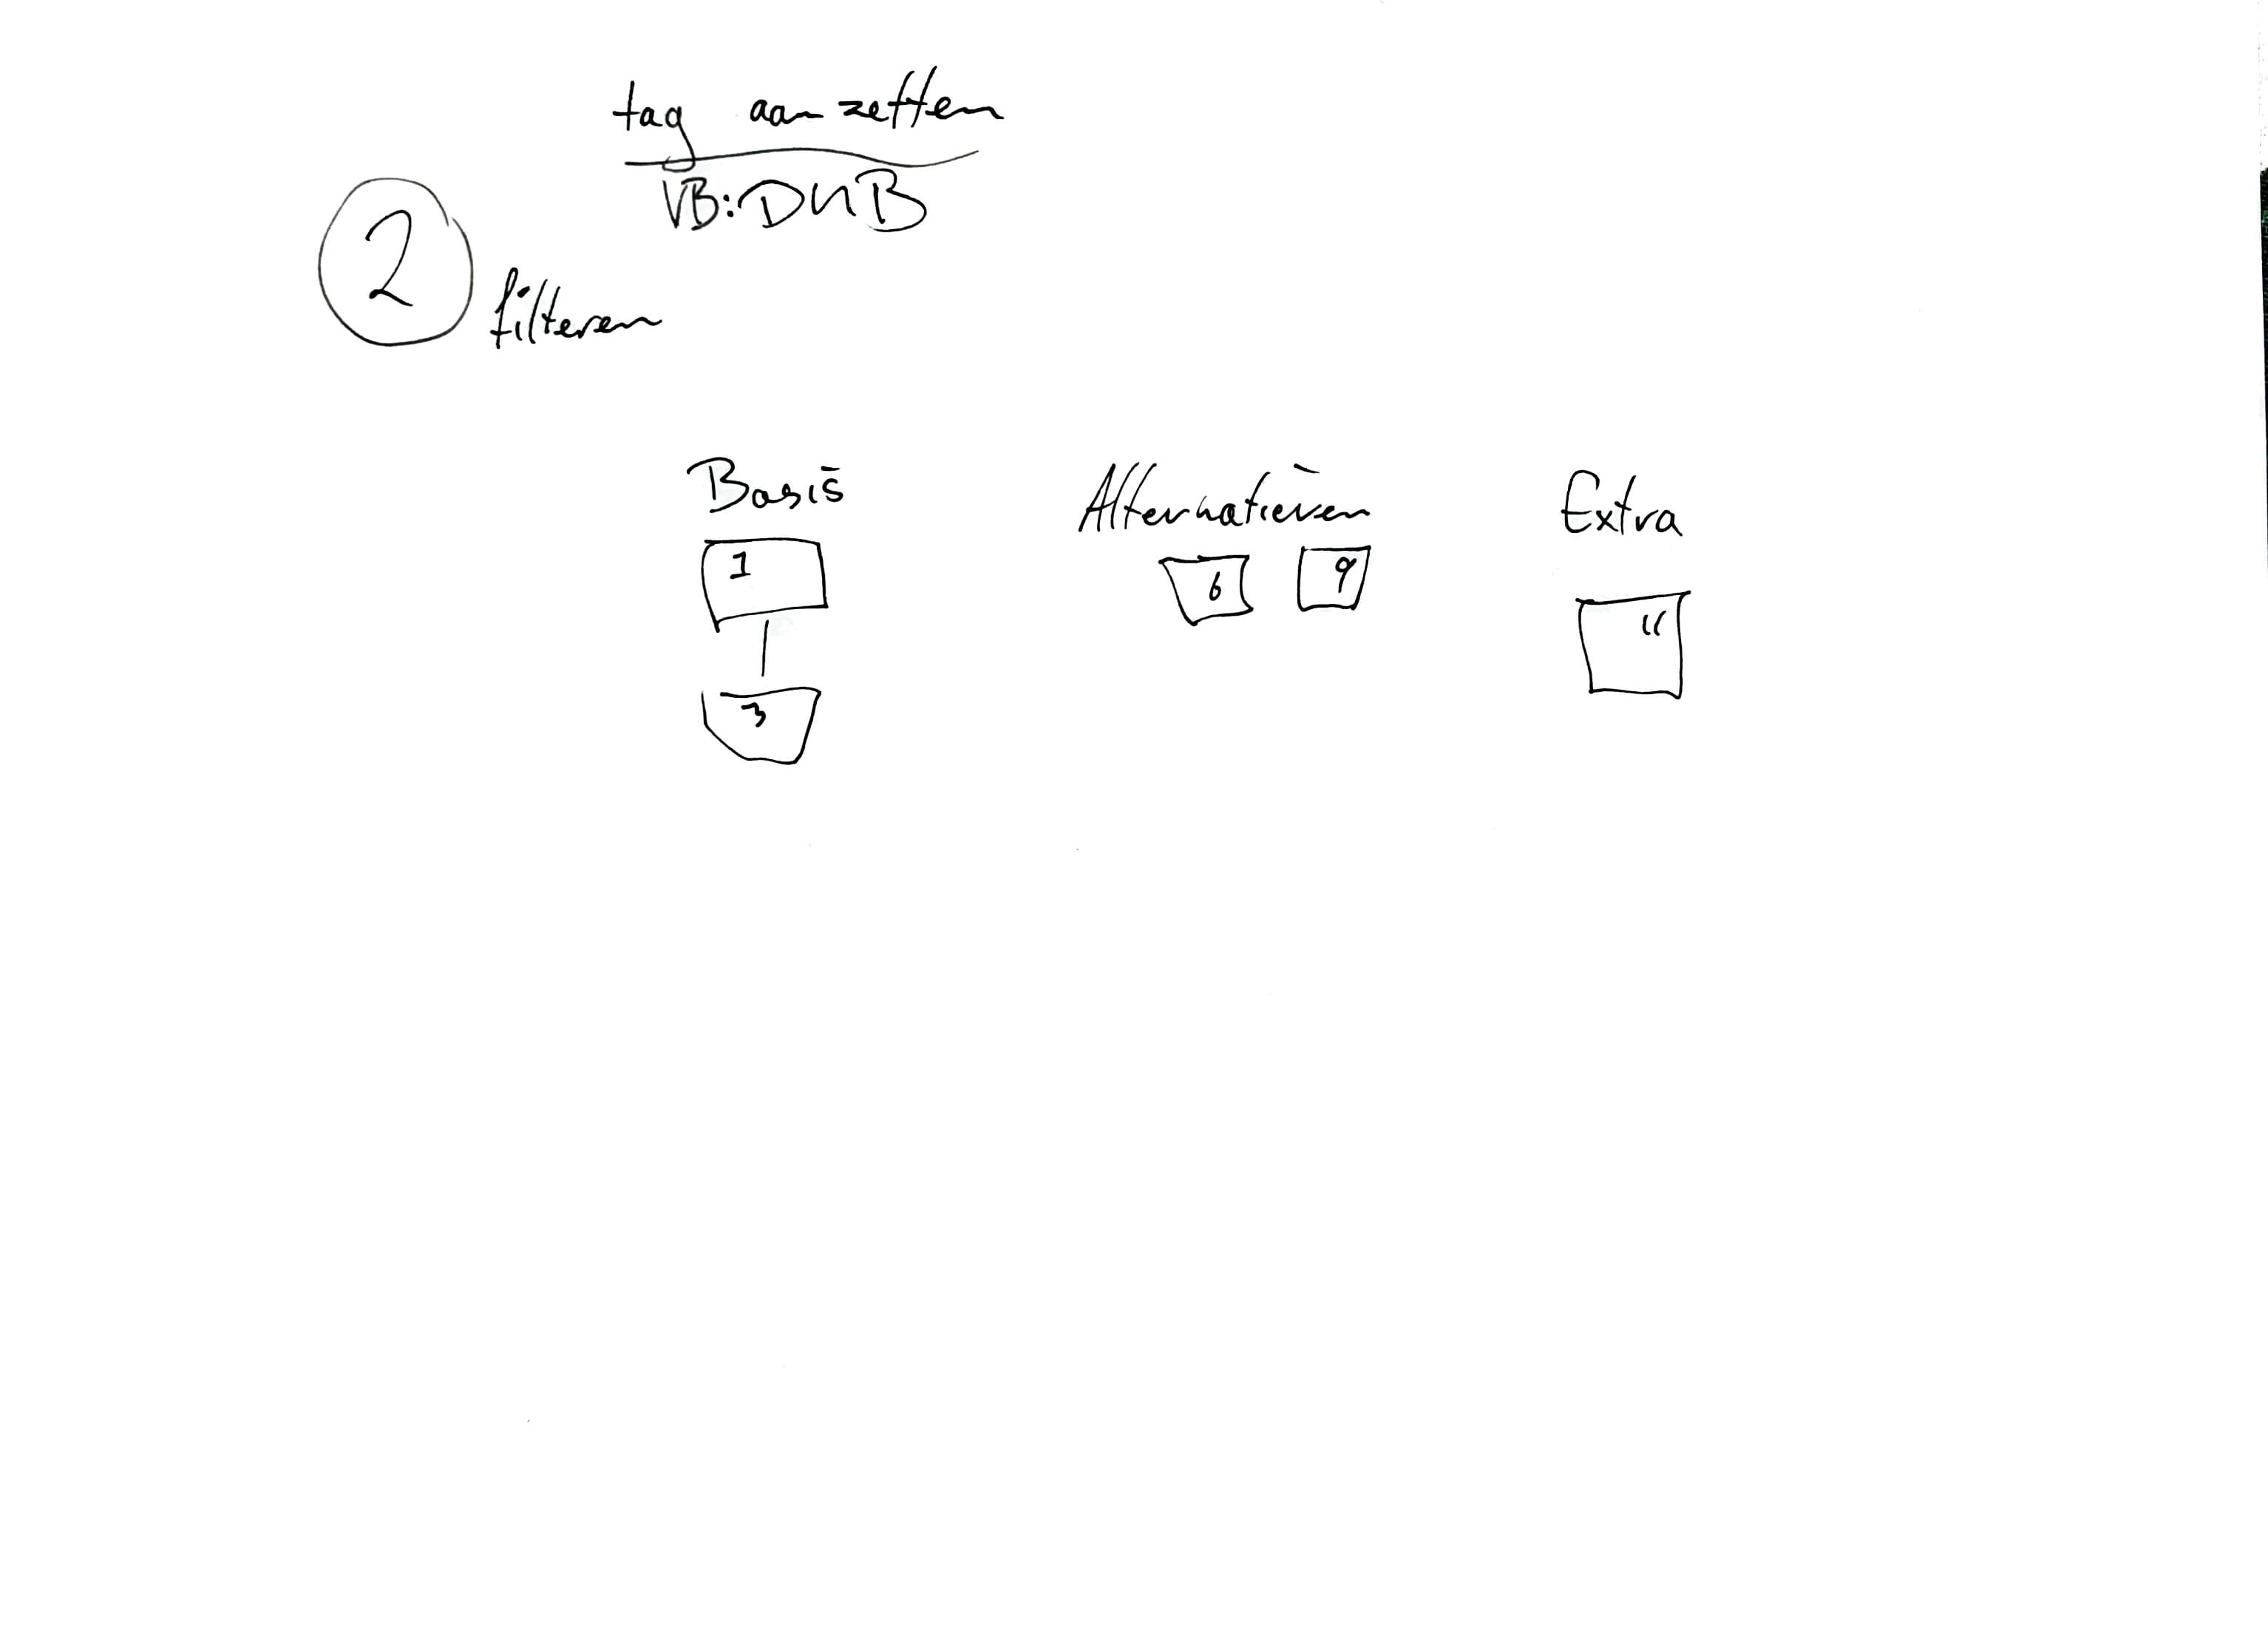 tag aanzetten
VB: DNB
2
filteren
Basis
Alternatieven
Extra
1
6
9
11
3